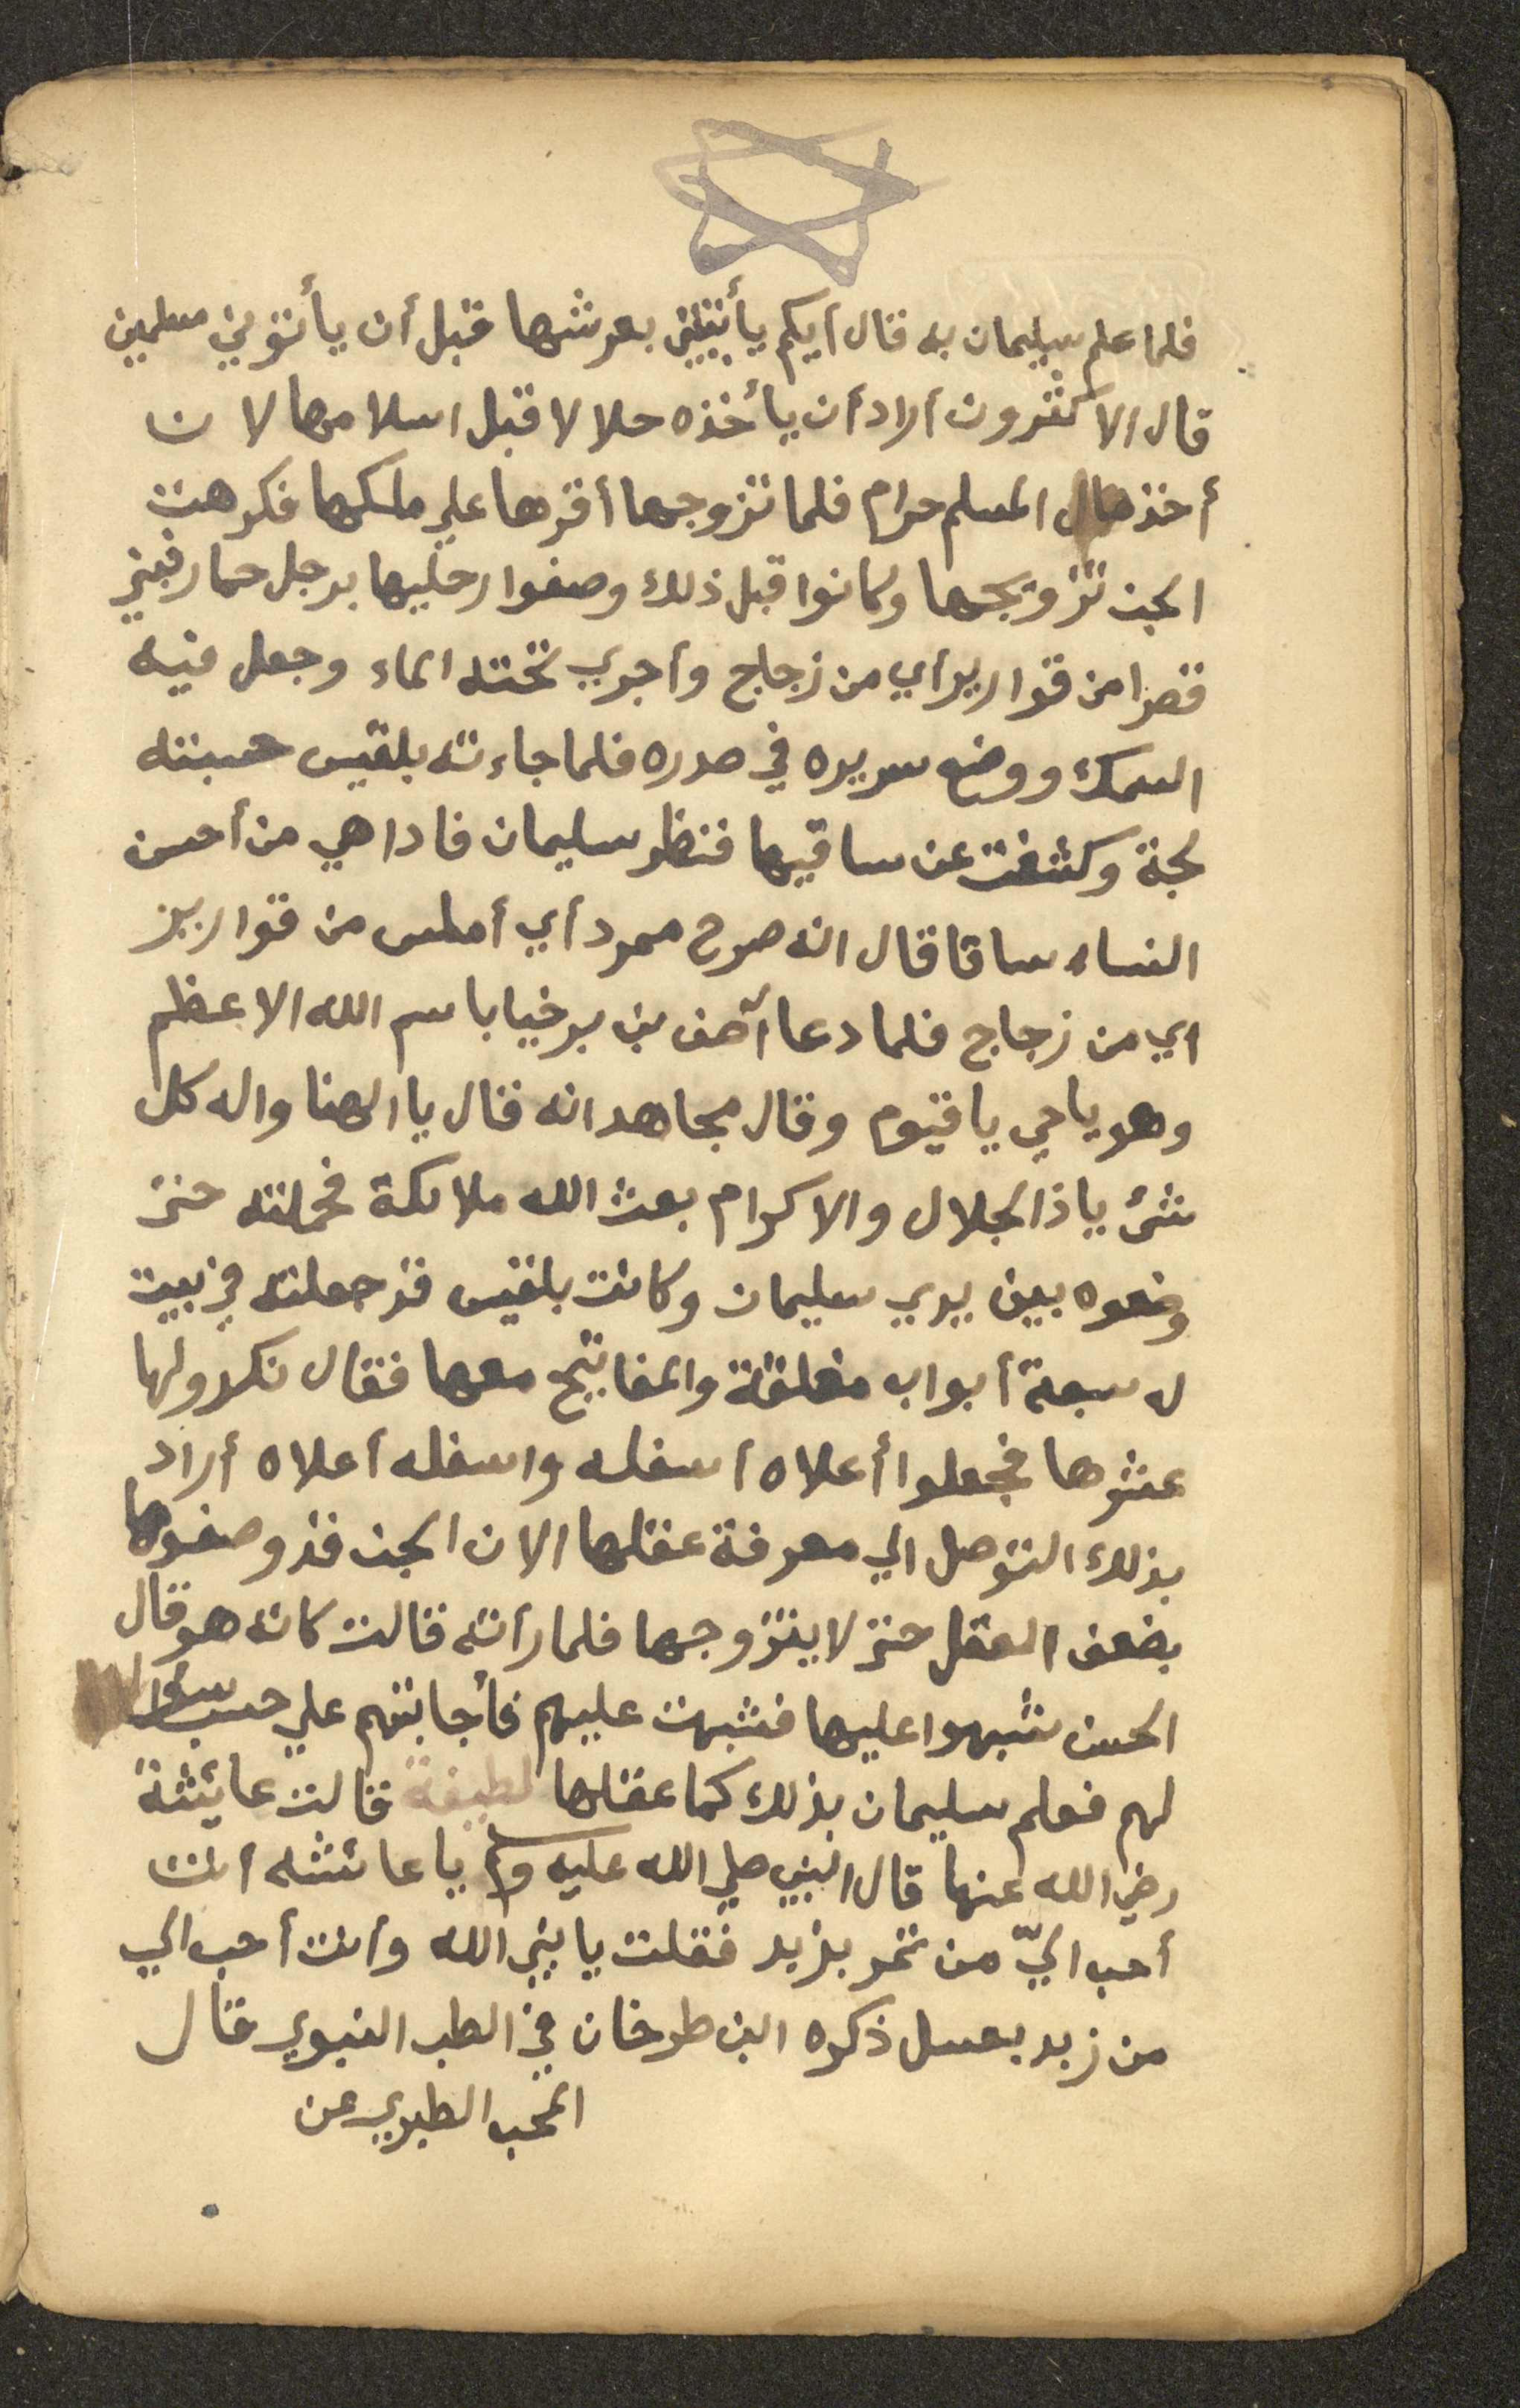 فلما علم سليمان به قال أيكم يأتيني بعرشها قبل أن يأتوني مسلمين
قال الاكثرون أراد أن يأخذه حلالا قبل اسلامها لان
أخذ مال المسلم حرام فلما تزوجها أقرها علي ملكها فكرهت
الجن تزويجها وكانوا قبل ذلك وصفوا رجليها برجل حمار فبني
قصرا من قوارير أي من زجاج وأجري تحته الماء وجعل فيه
السمك ووضع سريره في صدره فلما جاءته بلقيس حسبته
لجة وكشفت عن ساقيها فنظر سليمان فاذا هي من أحسن
النساء ساقا قال انه صرح ممرد أي أملس من قوارير
اي من زجاج فلما دعا آصف بن برخيا باسم الله الاعظم
وهو يا حي يا قيوم وقال مجاهد انه قال يا الهنا واله كل
شئ يا ذا الجلال والاكرام بعث الله ملائكة فحملته حتي
وضعوه بين يدي سليمان وكانت بلقيس قد جعلته في بيت
له سبعة أبواب مغلقة والمفاتيح معها فقال نكروا لها
عرشها فجعلوا أعلاه أسفله واسفله أعلاه أراد
بذلك التوصل الي معرفة عقلها الان الجن قد وصفوها
بضعف العقل حتي لا يتزوجها فلما رأته قالت كانه هو قال
الحسن شبهوا عليها فشبهت عليهم فأجابتهم علي حسب سؤالها
لهم فعلم سليمان بذلك كما عقلها لطيفة قالت عايشة
رضي الله عنها قال النبي صلي الله عليه وسلم يا عائشه أنت
أحب اليّ من تمر بزبد فقلت يا نبي الله وأنت أحب الي
من زبد بعسل ذكره ابن طرخان في الطب النبوي قال
المحب الطبري عن